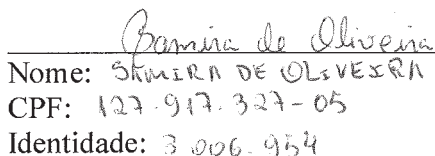 Samira de Oliveira
Nome: SAMIRA DE OLIVEIRA
CPF: 127.917.327-05
Identidade: 3 006.954